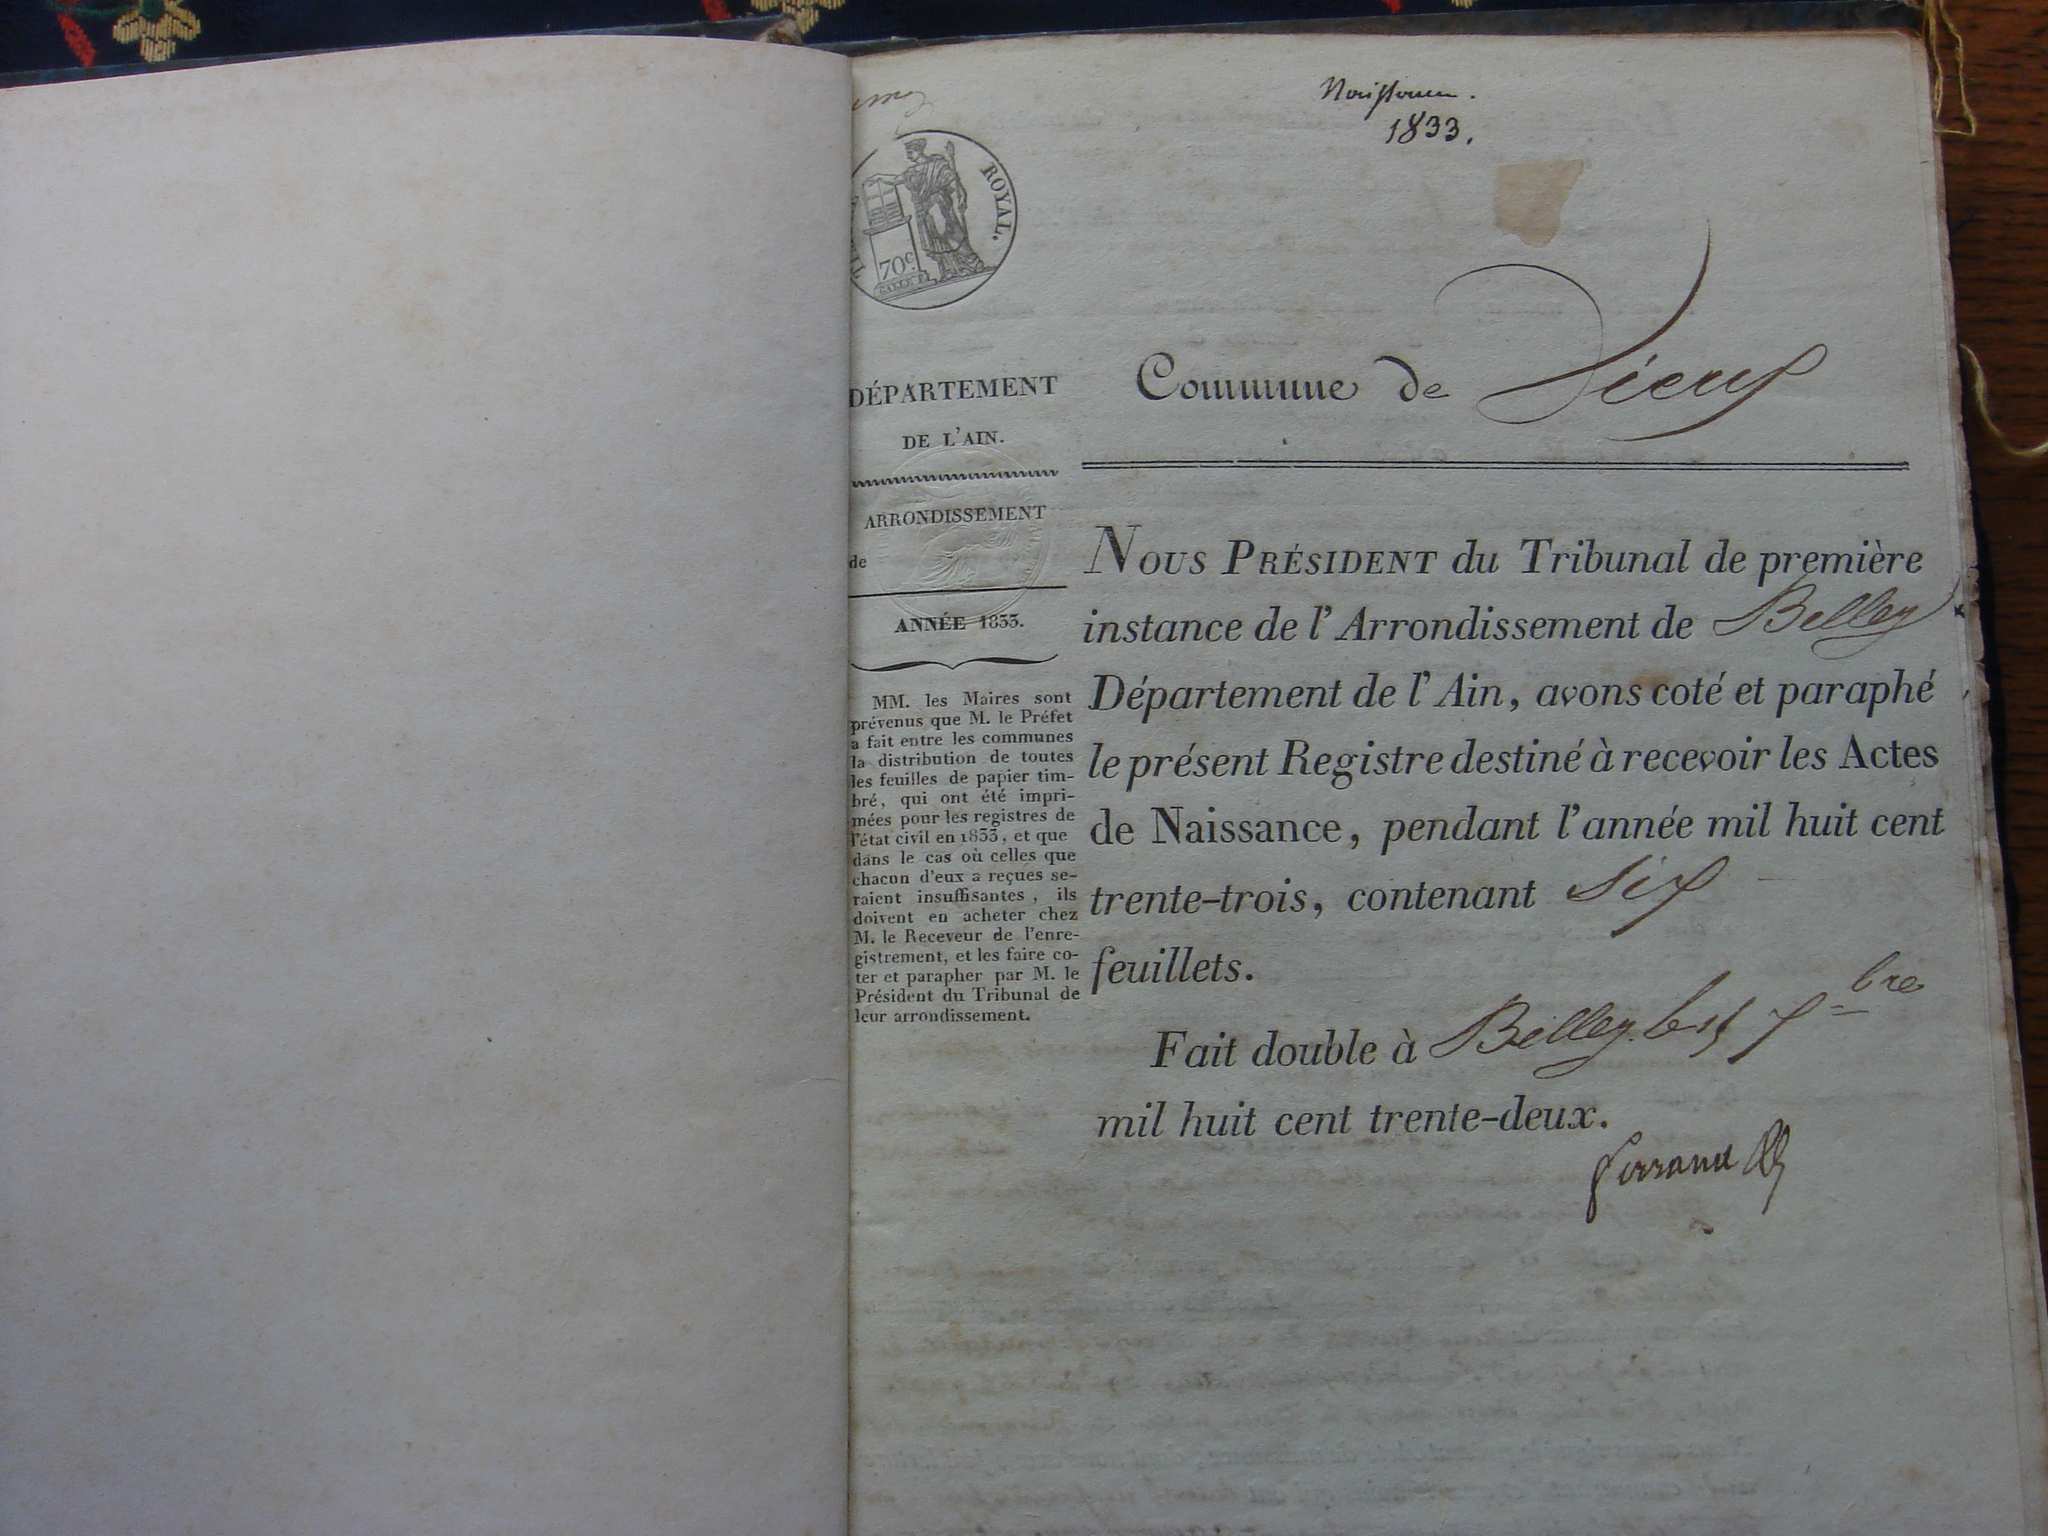 Naissances.
1833.
ROYAL.
70c.
DÉPARTEMENT
DE L'AIN.
ARRONDISSEMENT
de
ANNÉE 1833.
MM. les Maires sont
prévenus que M. le Préfet
a fait entre les communes
la distribution de toutes
les feuilles de papier tim-
bré, qui ont été impri-
mées pour les registres de
l'état civil en 1833, et que
dans le cas où celles que
chacun d'eux a reçues se-
raient insuffisantes, ils
doivent en acheter chez
M. le Receveur de l'enre-
gistrement, et les faire co-
ter et parapher par M. le
Président du Tribunal de
leur arrondissement.
Commune de
NOUS PRÉSIDENT du Tribunal de première
instance de l'Arrondissement de Belley
Département de l'Ain, avons coté et paraphé
le présent Registre destiné à recevoir les Actes
de Naissance, pendant l'année mil huit cent
trente-trois, contenant six
feuillets.
Fait double à Belley le 15 Xbre
mil huit cent trente-deux.